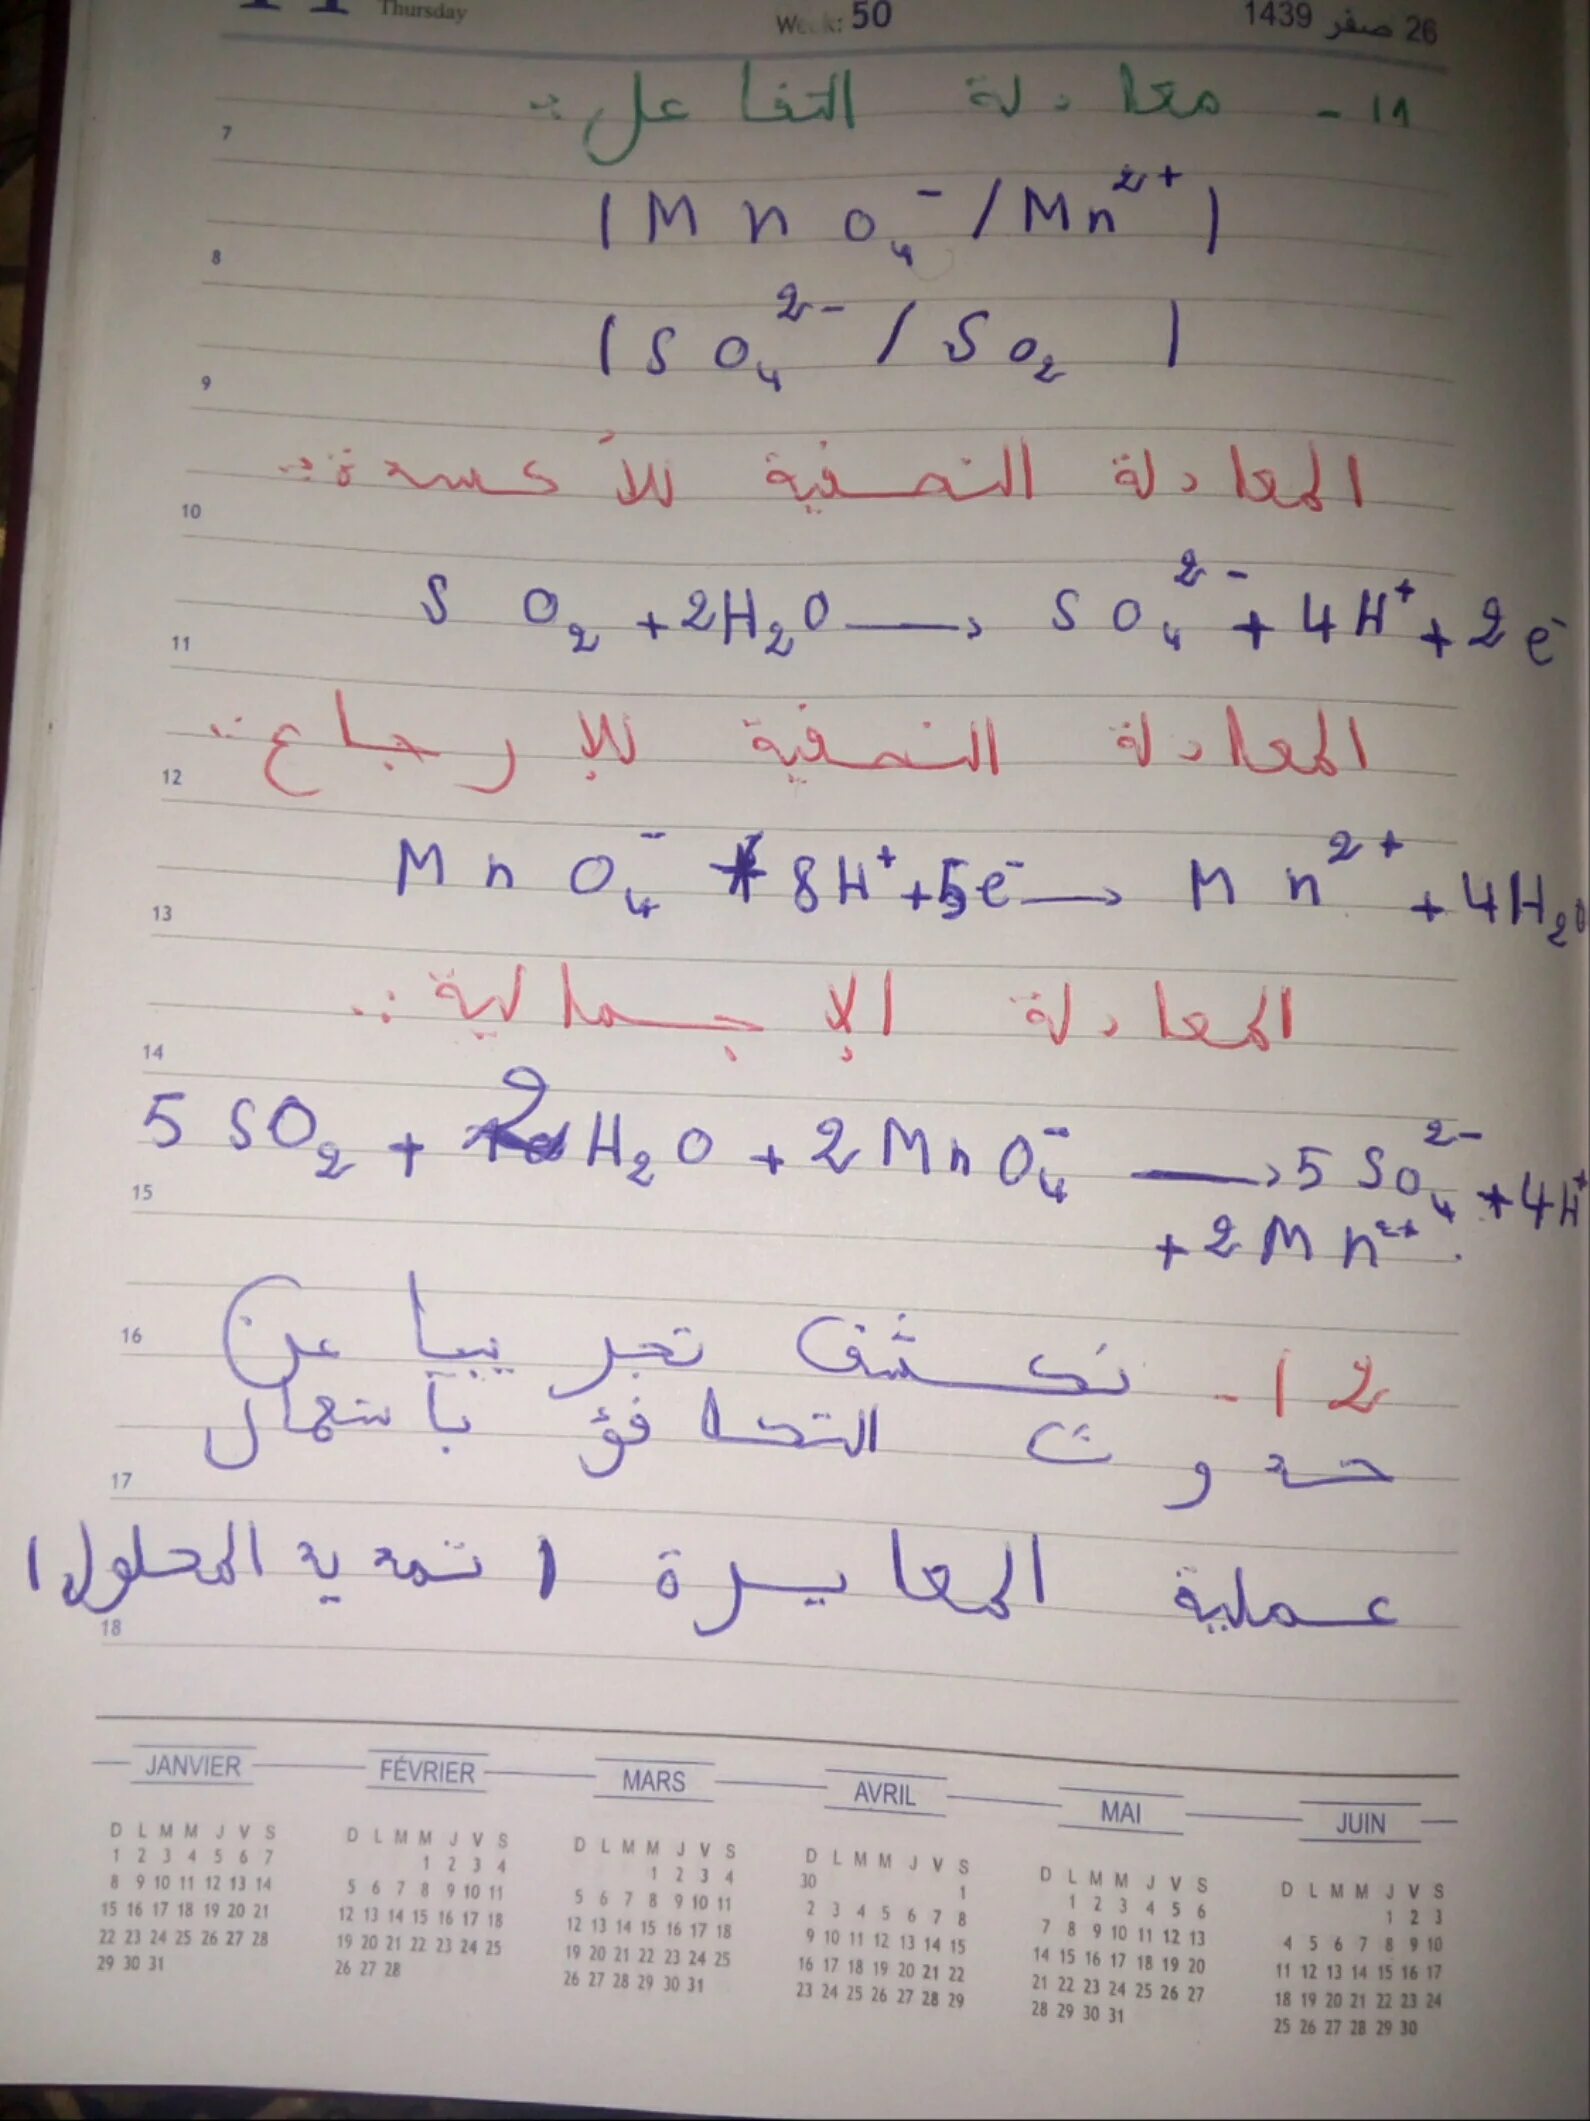 Thursday
Week: 50
26 صفر 1439
11 - معادلة التفاعل :
7
(MnO₄⁻ / Mn²⁺)
8
(SO₄²⁻ / SO₂)
9
المعادلة النصفية للأكسدة :
10
SO₂ + 2H₂O → SO₄²⁻ + 4H⁺ + 2e⁻
11
المعادلة النصفية للإرجاع :
12
MnO₄⁻ + 8H⁺ + 5e⁻ → Mn²⁺ + 4H₂O
13
المعادلة الإجمالية :
14
5 SO₂ + 2 H₂O + 2 MnO₄⁻ → 5 SO₄²⁻ + 4H⁺
15
+ 2 Mn²⁺.
16
12 - نكشف تجريبيا عن
حدوث التكافؤ باستعمال
17
عملية المعايرة (تمديد المحلول)
18
JANVIER FÉVRIER MARS AVRIL MAI JUIN
D L M M J V S
1 2 3 4 5 6 7
8 9 10 11 12 13 14
15 16 17 18 19 20 21
22 23 24 25 26 27 28
29 30 31
D L M M J V S
1 2 3 4
5 6 7 8 9 10 11
12 13 14 15 16 17 18
19 20 21 22 23 24 25
26 27 28
D L M M J V S
1 2 3 4
5 6 7 8 9 10 11
12 13 14 15 16 17 18
19 20 21 22 23 24 25
26 27 28 29 30 31
D L M M J V S
30 1
2 3 4 5 6 7 8
9 10 11 12 13 14 15
16 17 18 19 20 21 22
23 24 25 26 27 28 29
D L M M J V S
1 2 3 4 5 6
7 8 9 10 11 12 13
14 15 16 17 18 19 20
21 22 23 24 25 26 27
28 29 30 31
D L M M J V S
1 2 3
4 5 6 7 8 9 10
11 12 13 14 15 16 17
18 19 20 21 22 23 24
25 26 27 28 29 30